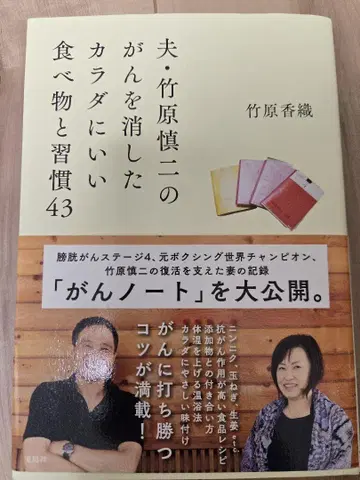 夫・竹原慎二の
がんを消した
カラダにいい
食べ物と習慣
43
竹原香織
膀胱がんステージ4、元ボクシング世界チャンピオン、
竹原慎二の復活を支えた妻の記録
「がんノート」を大公開。
ニンニク、玉ねぎ、生姜etc.
抗がん作用が高い食品レシピ
添加物との付き合い方
体温を上げる温浴法
カラダにやさしい味付け
がんに打ち勝つ
コツが満載!